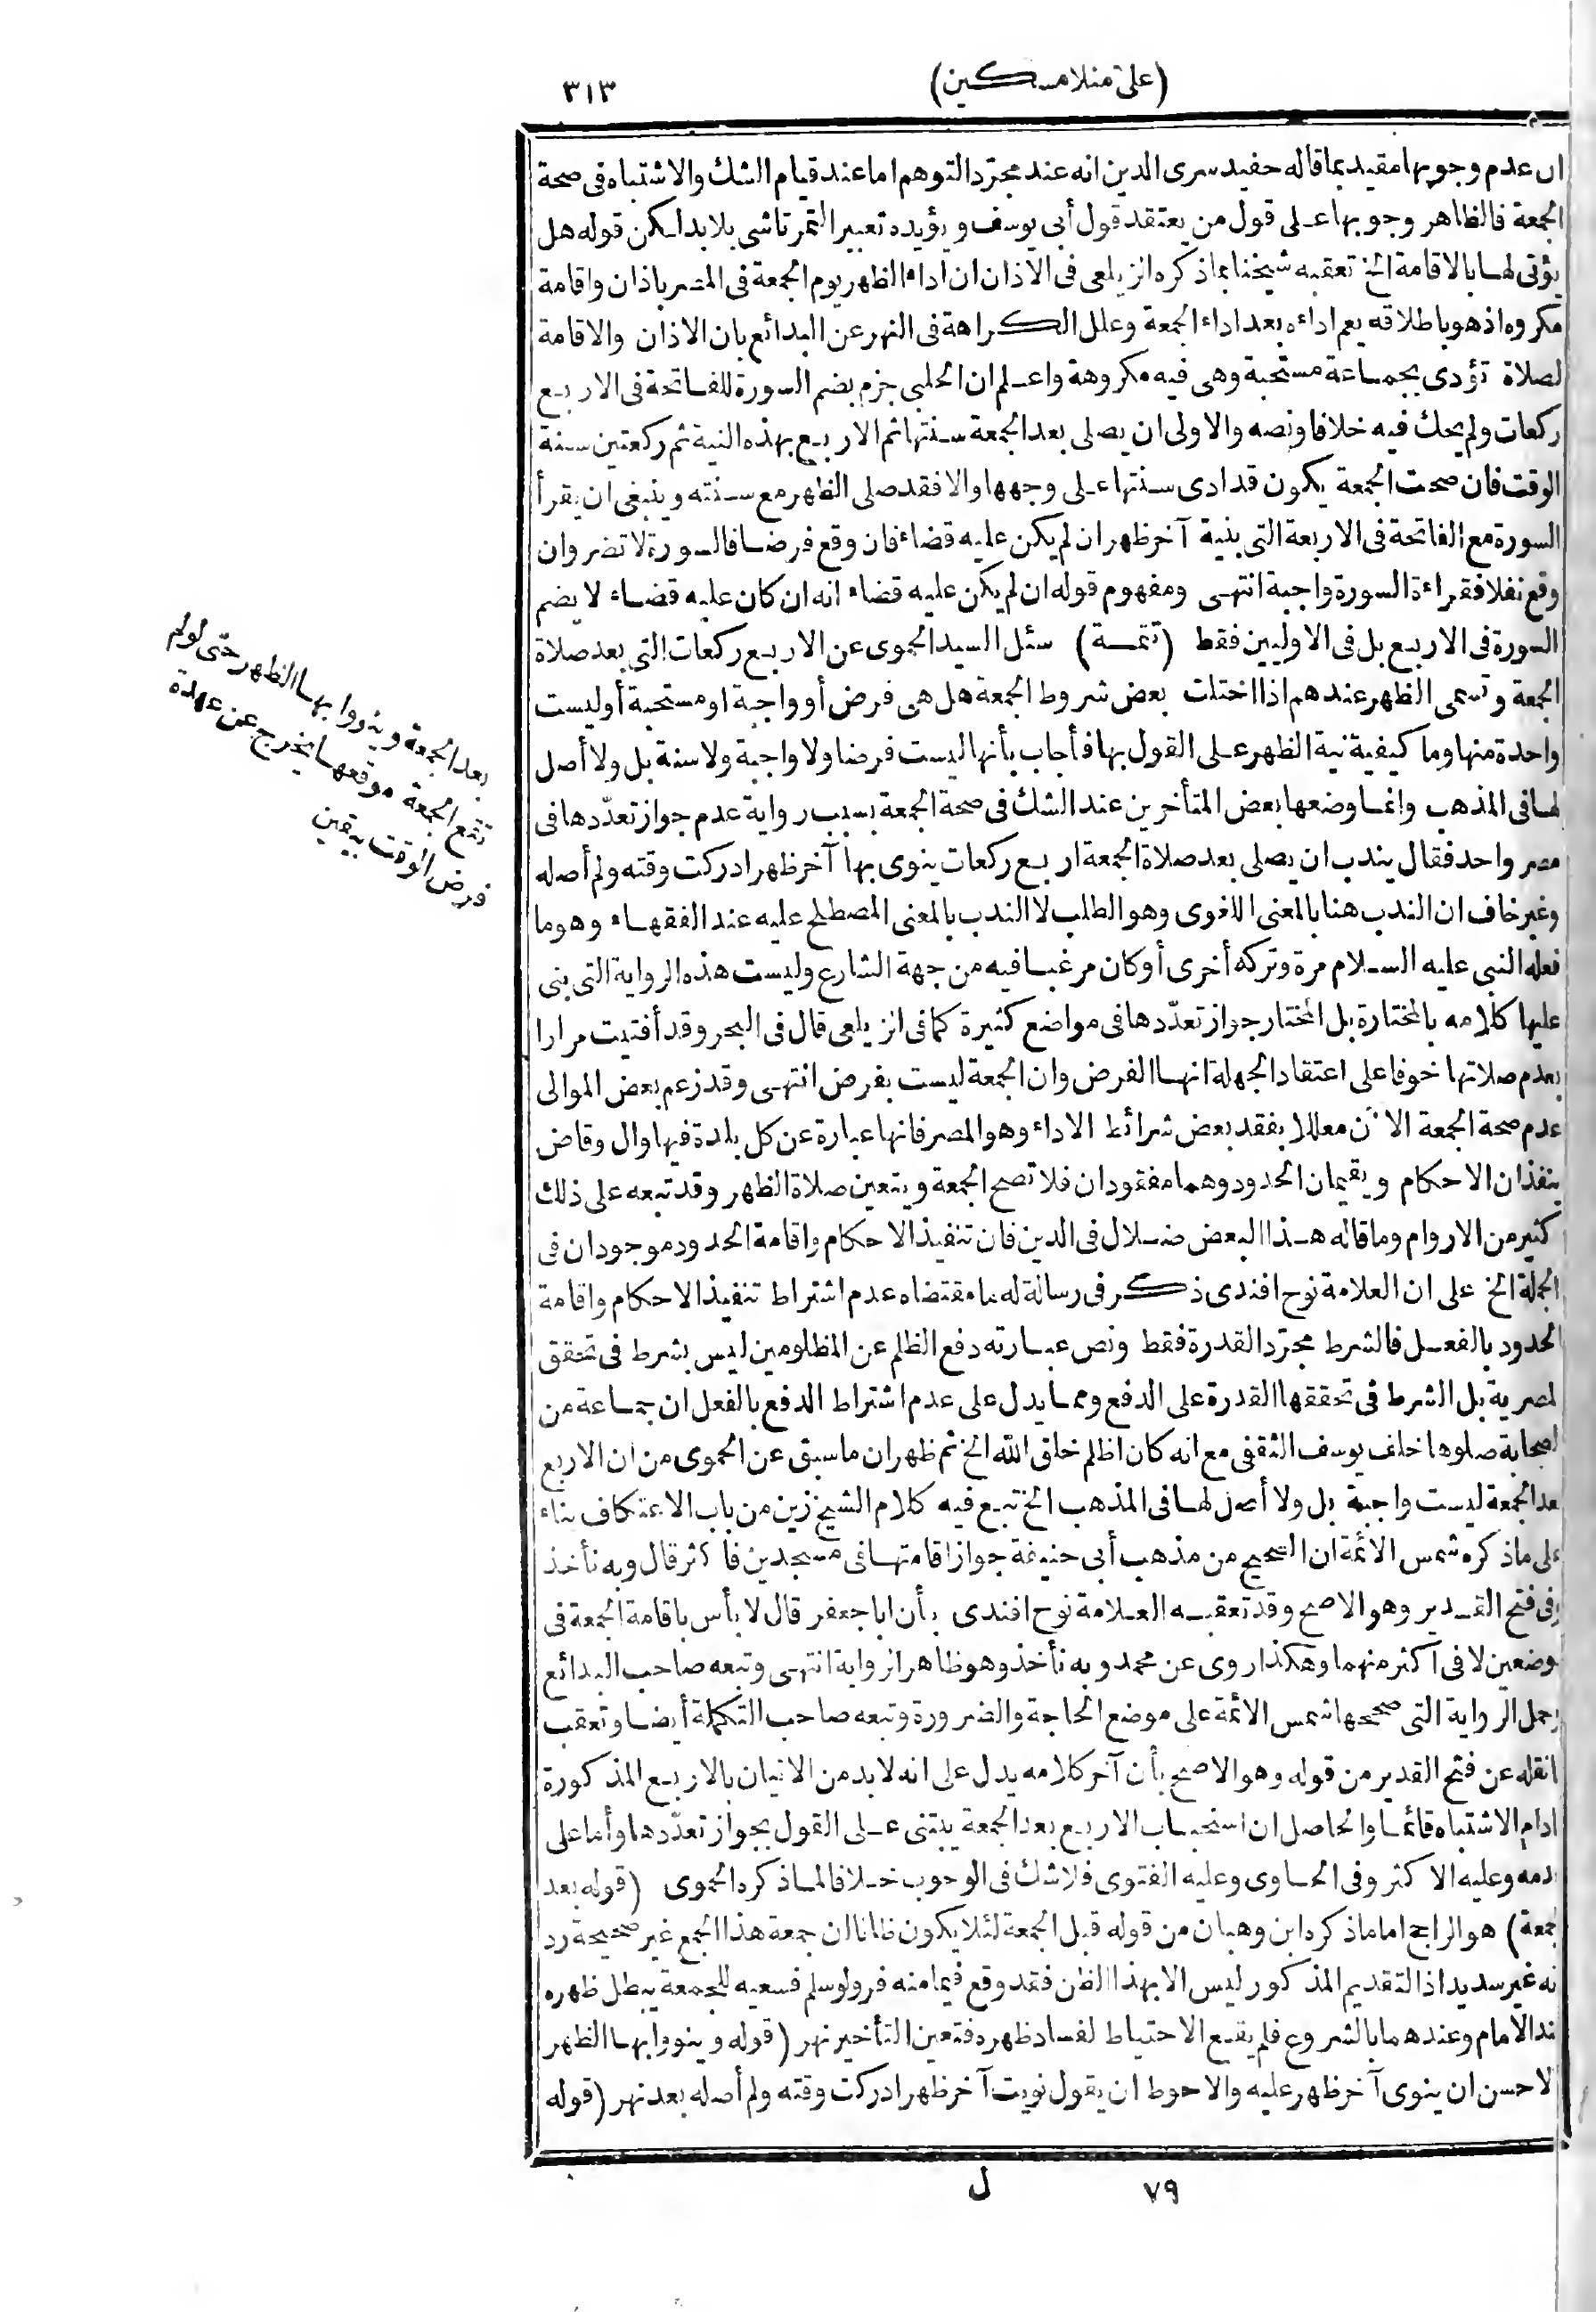 (على منلا مسكين)
٣١٣
ان عدم وجوبها مقيد بما قاله حفيد سرى الدين انه عند مجرّد التوهم اما عند قيام الشك والاشتباه فى صحة
الجمعة فالظاهر وجوبها على قول من يعتقد قول أبى يوسف ويؤيده تعبير التمرتاشى بلابد لكن قوله هل
يؤتى لها بالاقامة الخ تعقبه شيخنا بما ذكره الزيلعى فى الاذان ان اداء الظهر يوم الجمعة فى المصر باذان واقامة
مكروه اذ هو باطلاقه يعم اداءه بعد اداء الجمعة وعلل الكراهة فى النهر عن البدائع بان الاذان والاقامة
لصلاة تؤدى بجماعة مستحبة وهى فيه مكروهة واعلم ان الحلبى جزم بضم السورة للفاتحة فى الاربع
ركعات ولم يحك فيه خلافا ونصه والاولى ان يصلى بعد الجمعة سنتها ثم الاربع بهذه النية ثم ركعتين سنة
الوقت فان صحت الجمعة يكون قد ادى سنتها على وجهها والا فقد صلى الظهر مع سنته وينبغى ان يقرأ
السورة مع الفاتحة فى الاربعة التى بنية آخر ظهر ان لم يكن عليه قضاء فان وقع فرضا فالسورة لا تضر وان
وقع نفلا فقراءة السورة واجبة انتهى ومفهوم قوله ان لم يكن عليه قضاء انه ان كان عليه قضاء لا يضم
السورة فى الاربع بل فى الاوليين فقط (تتمة) سئل السيد الحموى عن الاربع ركعات التى بعد صلاة
الجمعة وتسمى الظهر عندهم اذا اختلت بعض شروط الجمعة هل هى فرض أو واجبة او مستحبة أو ليست
واحدة منها وما كيفية نية الظهر على القول بها فأجاب بأنها ليست فرضا ولا واجبة ولا سنة بل ولا أصل
لها فى المذهب وانما وضعها بعض المتأخرين عند الشك فى صحة الجمعة بسبب رواية عدم جواز تعدّدها فى
مصر واحد فقال يندب ان يصلى بعد صلاة الجمعة اربع ركعات ينوى بها آخر ظهر ادركت وقته ولم أصله
وغير خاف ان الندب هنا بالمعنى اللغوى وهو الطلب لا الندب بالمعنى المصطلح عليه عند الفقهاء وهو ما
فعله النبى عليه السلام مرة وتركه أخرى أو كان مرغبا فيه من جهة الشارع وليست هذه الرواية التى بنى
عليها كلامه بالمختارة بل المختار جواز تعدّدها فى مواضع كثيرة كما فى الزيلعى قال فى البحر وقد أفتيت مرارا
بعدم صلاتها خوفا على اعتقاد الجهلة انها الفرض وان الجمعة ليست بفرض انتهى وقد زعم بعض الموالى
عدم صحة الجمعة الآن معللا بفقد بعض شرائط الاداء وهو المصر فانها عبارة عن كل بلدة فيها وال وقاض
ينفذان الاحكام ويقيمان الحدود وهما مفقودان فلا تصح الجمعة ويتعين صلاة الظهر وقد تبعه على ذلك
كثير من الاروام وما قاله هذا البعض ضلال فى الدين فان تنفيذ الاحكام واقامة الحدود موجودان فى
الجملة الخ على ان العلامة نوح افندى ذكر فى رسالة له ما مقتضاه عدم اشتراط تنفيذ الاحكام واقامة
الحدود بالفعل فالشرط مجرّد القدرة فقط ونص عبارته دفع الظلم عن المظلومين ليس بشرط فى تحقق
لمصرية بل الشرط فى تحققها القدرة على الدفع ومما يدل على عدم اشتراط الدفع بالفعل ان جماعة من
لصحابة صلوها خلف يوسف الثقفى مع انه كان اظلم خلق الله الخ ثم ظهر ان ما سبق عن الحموى من ان الاربع
بعد الجمعة ليست واجبة بل ولا أصل لها فى المذهب الخ تبع فيه كلام الشيخ زين من باب الاعتكاف بناء
على ما ذكره شمس الائمة ان الصحيح من مذهب أبى حنيفة جواز اقامتها فى مسجدين فاكثر قال وبه نأخذ
وفى فتح القدير وهو الاصح وقد تعقبه العلامة نوح افندى بأن ابا جعفر قال لا بأس باقامة الجمعة فى
موضعين لا فى اكثر منهما وهكذا روى عن محمد وبه نأخذ وهو ظاهر الرواية انتهى وتبعه صاحب البدائع
وحمل الرواية التى صححها شمس الائمة على موضع الحاجة والضرورة وتبعه صاحب التكملة أيضا وتعقب
انقله عن فتح القدير من قوله وهو الاصح بأن آخر كلامه يدل على انه لابد من الاتيان بالاربع المذكورة
ادام الاشتباه قائما والحاصل ان استحباب الاربع بعد الجمعة يبتنى على القول بجواز تعدّدها وأما على
دمه وعليه الاكثر وفى الحاوى وعليه الفتوى فلا شك فى الوجوب خلافا لما ذكره الحموى (قوله بعد
لجمعة) هو الراجح اما ما ذكره ابن وهبان من قوله قبل الجمعة لئلا يكون ظانا ان جمعة هذا الجمع غير صحيحة رد
نه غير سديد اذ التقديم المذكور ليس الا بهذا الظن فقد وقع فيما منه فر ولو سلم فسعيه للجمعة يبطل ظهره
ند الامام وعندهما بالشروع فلم يقع الاحتياط لفساد ظهره فتعين التأخير نهر (قوله وينووا بها الظهر
الاحسن ان ينوى آخر ظهر عليه والاحوط ان يقول نويت آخر ظهر ادركت وقته ولم أصله بعد نهر (قوله
بعد الجمعة وينووا بها الظهر حتى لو لم
تقع الجمعة موقعها يخرج عن عهدة
فرض الوقت بيقين
٧٩
ل